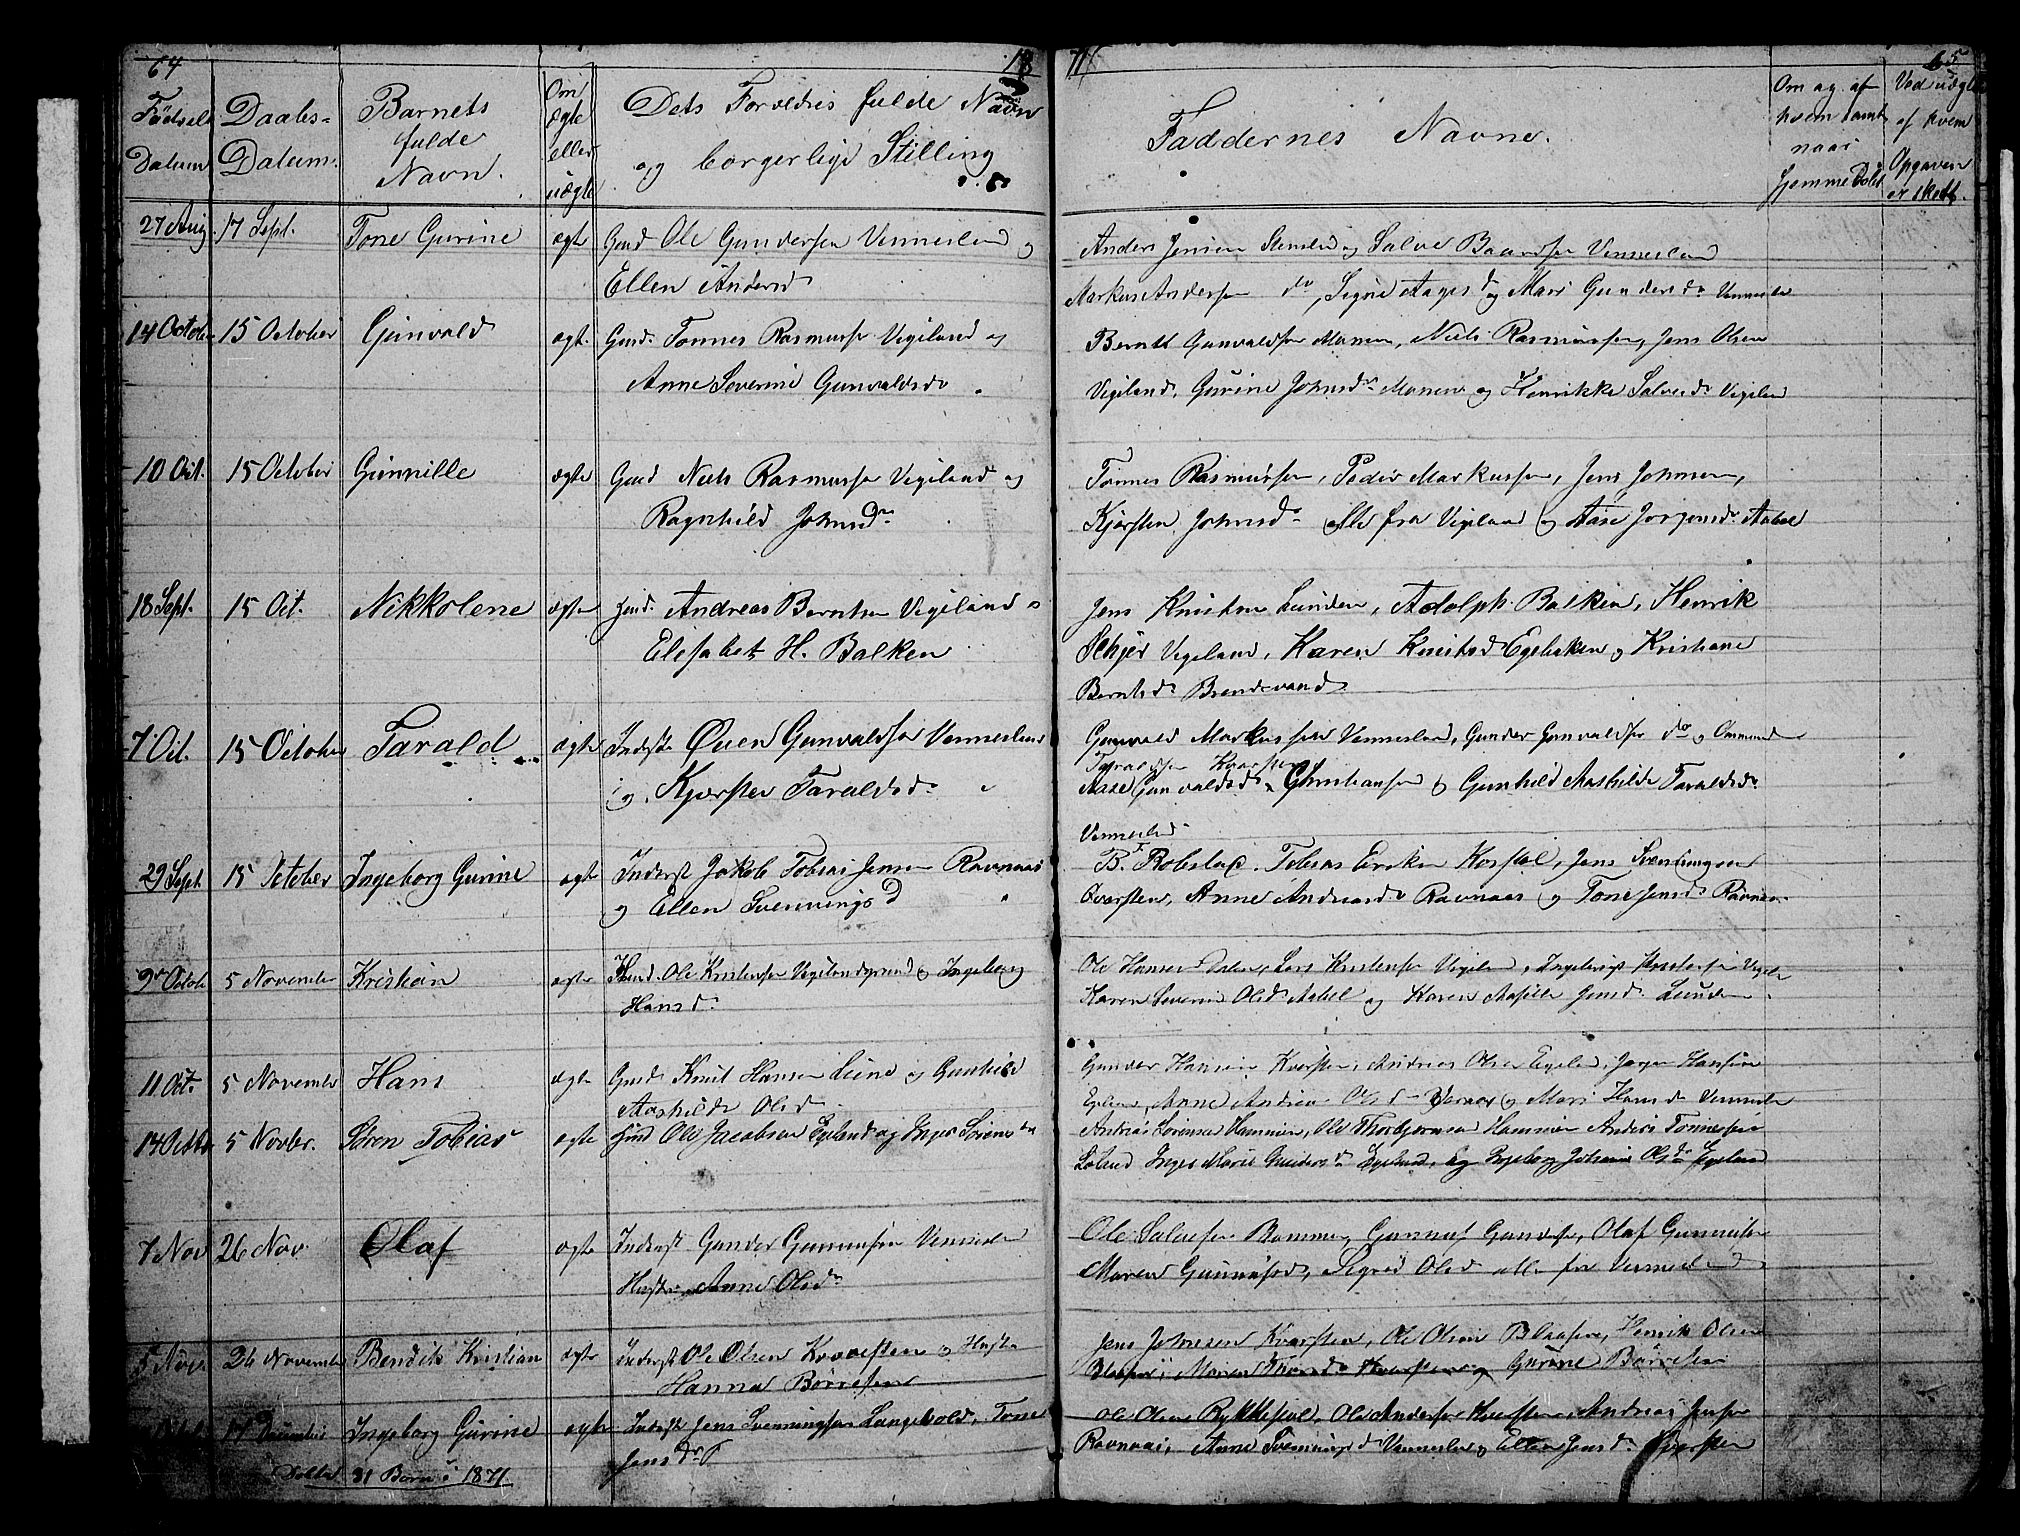 64
18
71
65
Fødsels Datum
Daabs-Datum.
Barnets fulde Navn.
Om ægte eller uægte
Dets Forældres fulde Navn og borgerlige Stilling
Faddernes Navne.
Om og af hvem samt naar hjemmedøbt
Ved uægte af hvem Opgaven er skedt.
27 Aug. 17 Sept. Tone Gurine ægte Gmd Ole Gundersen Vennesland og
Ellen Andersd
Anders Jensen Stemlid og Salve Baardsen Vennesland
Markus Andersen do, Signe Aagesd og Mari Gundersdr Vennesla
14 October 15 October Gunvald ægt. Gmd. Tønnes Rasmussen Vigeland og
Anne Severine Gunvaldsdr
Berntt Gunvaldsen Moneen, Niels Rasmussen, Jens Olsen
Vigeland, Gurine Johnsdr Moneen og Henrikke Salvesdr Vigeland
10 Oct. 15 October Gunnille ægte Gmd Niels Rasmussen Vigeland og
Ragnhild Johnsdr
Tønnes Rasmussen, Peder Markussen, Jens Johnsen,
Kjersten Johnsdr alle fra Vigeland og Aase Jørgensdr Aabel
18 Sept. 15 Oct. Nikkolene ægte Gmd. Andreas Berntsen Vigeland o
Elisabet H. Balken
Jens Knutsen Lunden, Adolph Balken, Henrik
Schjer Vigeland, Karen Knutsd Egebaken og Kristiane
Berntsdr Brendsvand
7 Oct. 15 October Tarald ægte Inderst Øuen Gunvaldsen Vennesland
og Kjersten Taraldsdr
Gunvald Markussen Vennesland, Gunder Gunvaldsen do og Ommund
Taraldsen Kvarsten
Aase Gunvaldsdr Christiansen og Gunhild Mathilde Taraldsdr
Vennesld
29 Sept 15 October Ingeborg Gurine ægte Inderst Jakob Tobias Jensen Ravnaas
og Ellen SvenningsD
B. Robstad. Tobias Eriksen Kostøl, Jens Svenningsen
Qvarsten, Anne Andreasdr Ravnaas og Tone Jensdr Ravnaas
9 Octob 5 November Kristian ægte Gmd. Ole Kristensen Vigelandsgrund og Ingeborg
Hansd.
Ole Hansen Dalen, Lars Kristensen Vigeland, Ingebrigt Kristensen Vigeln
Karen Severine Olsdr Aabel og Karen Jensdr. Lunden
11 Oct. 5 November Hans ægte Gmd Knut Hansen Lund og Gunhild
Mathilde Olsd.
Gunder Hansen Kvarsten, Andreas Olsen Egeland, Jørgen Hansen
Egeland, Anne Andrea Olsd og Mari Hansdr Vennesla
14 Octbr 5 Novbr. Søren Tobias ægte Gmd Ole Jacobsen Egeland og Inger Sørensdtr
Andreas Sørensen Hammeren, Ole Thorbjørnsen Hammeren Anders Tønnesen
Loland Inger Marie Gundersdr Egeland, og Ingeborg Johanne Olsdr Egeland
7 Nov 26 Nov. Olaf ægte Inderst Gunder Gunnufsen Vennesla
Hustru Anne Olsdr
Ole Salvesen Bommen, Gunnuf Gundersen, Olaf Gunnufsen
Maren Gunnufsd, Sigrid Olsd alle fra Vennesland
5 Novbr 26 November Bendik Kristian ægte Inderst Ole Olsen Kvarsten og Hustru
Hanna Børresen
Jens Johnsen Kvarsten, Ole Olsen Blaasen, Henrik Olsen
Blaasen, Maren Kvarsten og Gurine Børresen
17 December Ingeborg Gurine ægte Inderst Jens Svenningsen Langevold, Tone
Jensdr
Ole Olsen Rykkestøl, Ole Andersen Kvarsten, Andreas Jensen
Ravnaas, Anne Svenningsd Vennesla og Ellen Jensdr Kvarsten
Døbte 31 Børn i 1871